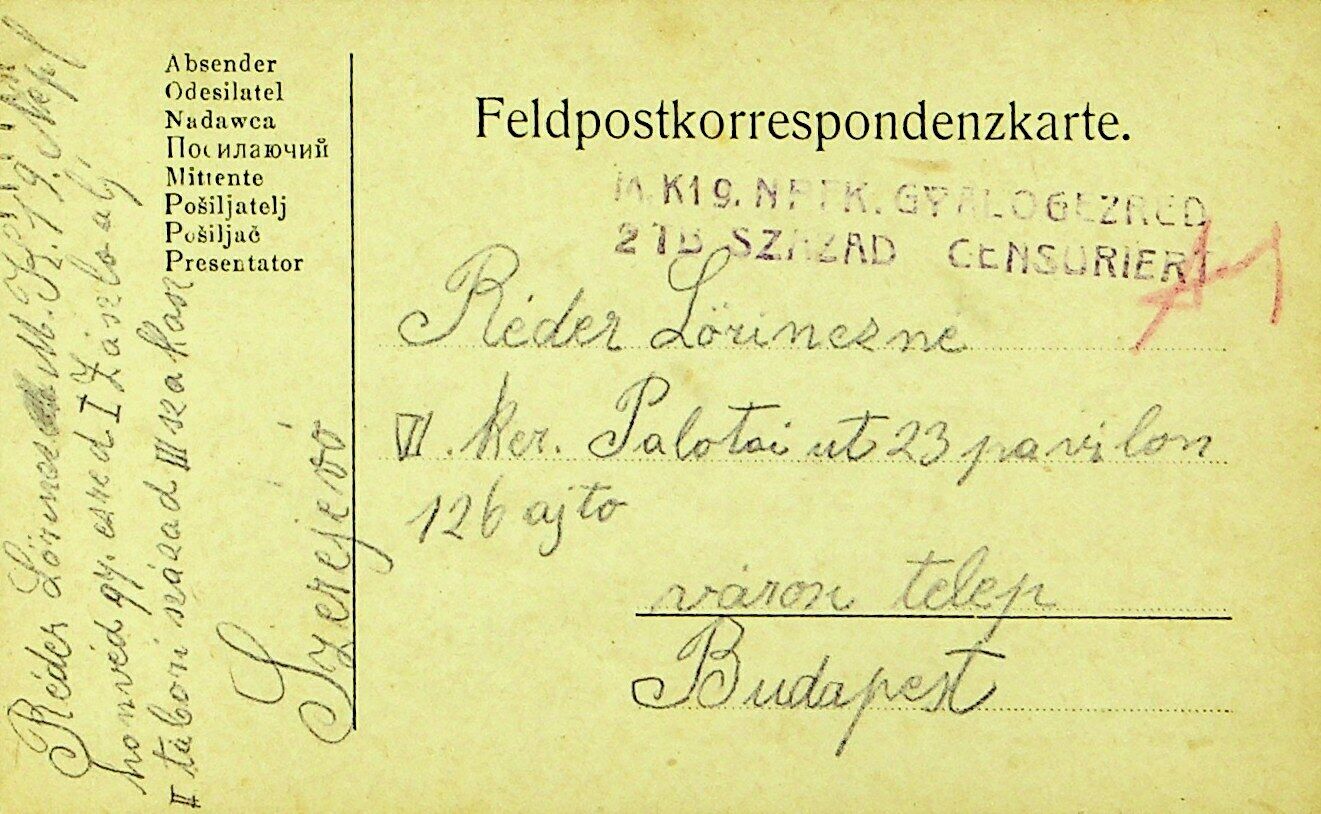 Absender
Odesilatel
Nadawca
Посилаючий
Mittente
Pošiljatelj
Pošiljač
Presentator
Feldpostkorrespondenzkarte.
M. K 19. NPFK. GYALOGEZRED
SZAZAD CENSURIERT
Réder Lörinczné
VII. ker. Palotai ut 23 pavilon
126 ajto
város telep
Budapest
Réder Lörincz M. K. 19. Népf
honvéd gy. ezred I Zászloalj
II tábori század III szakasz
Szerejévó